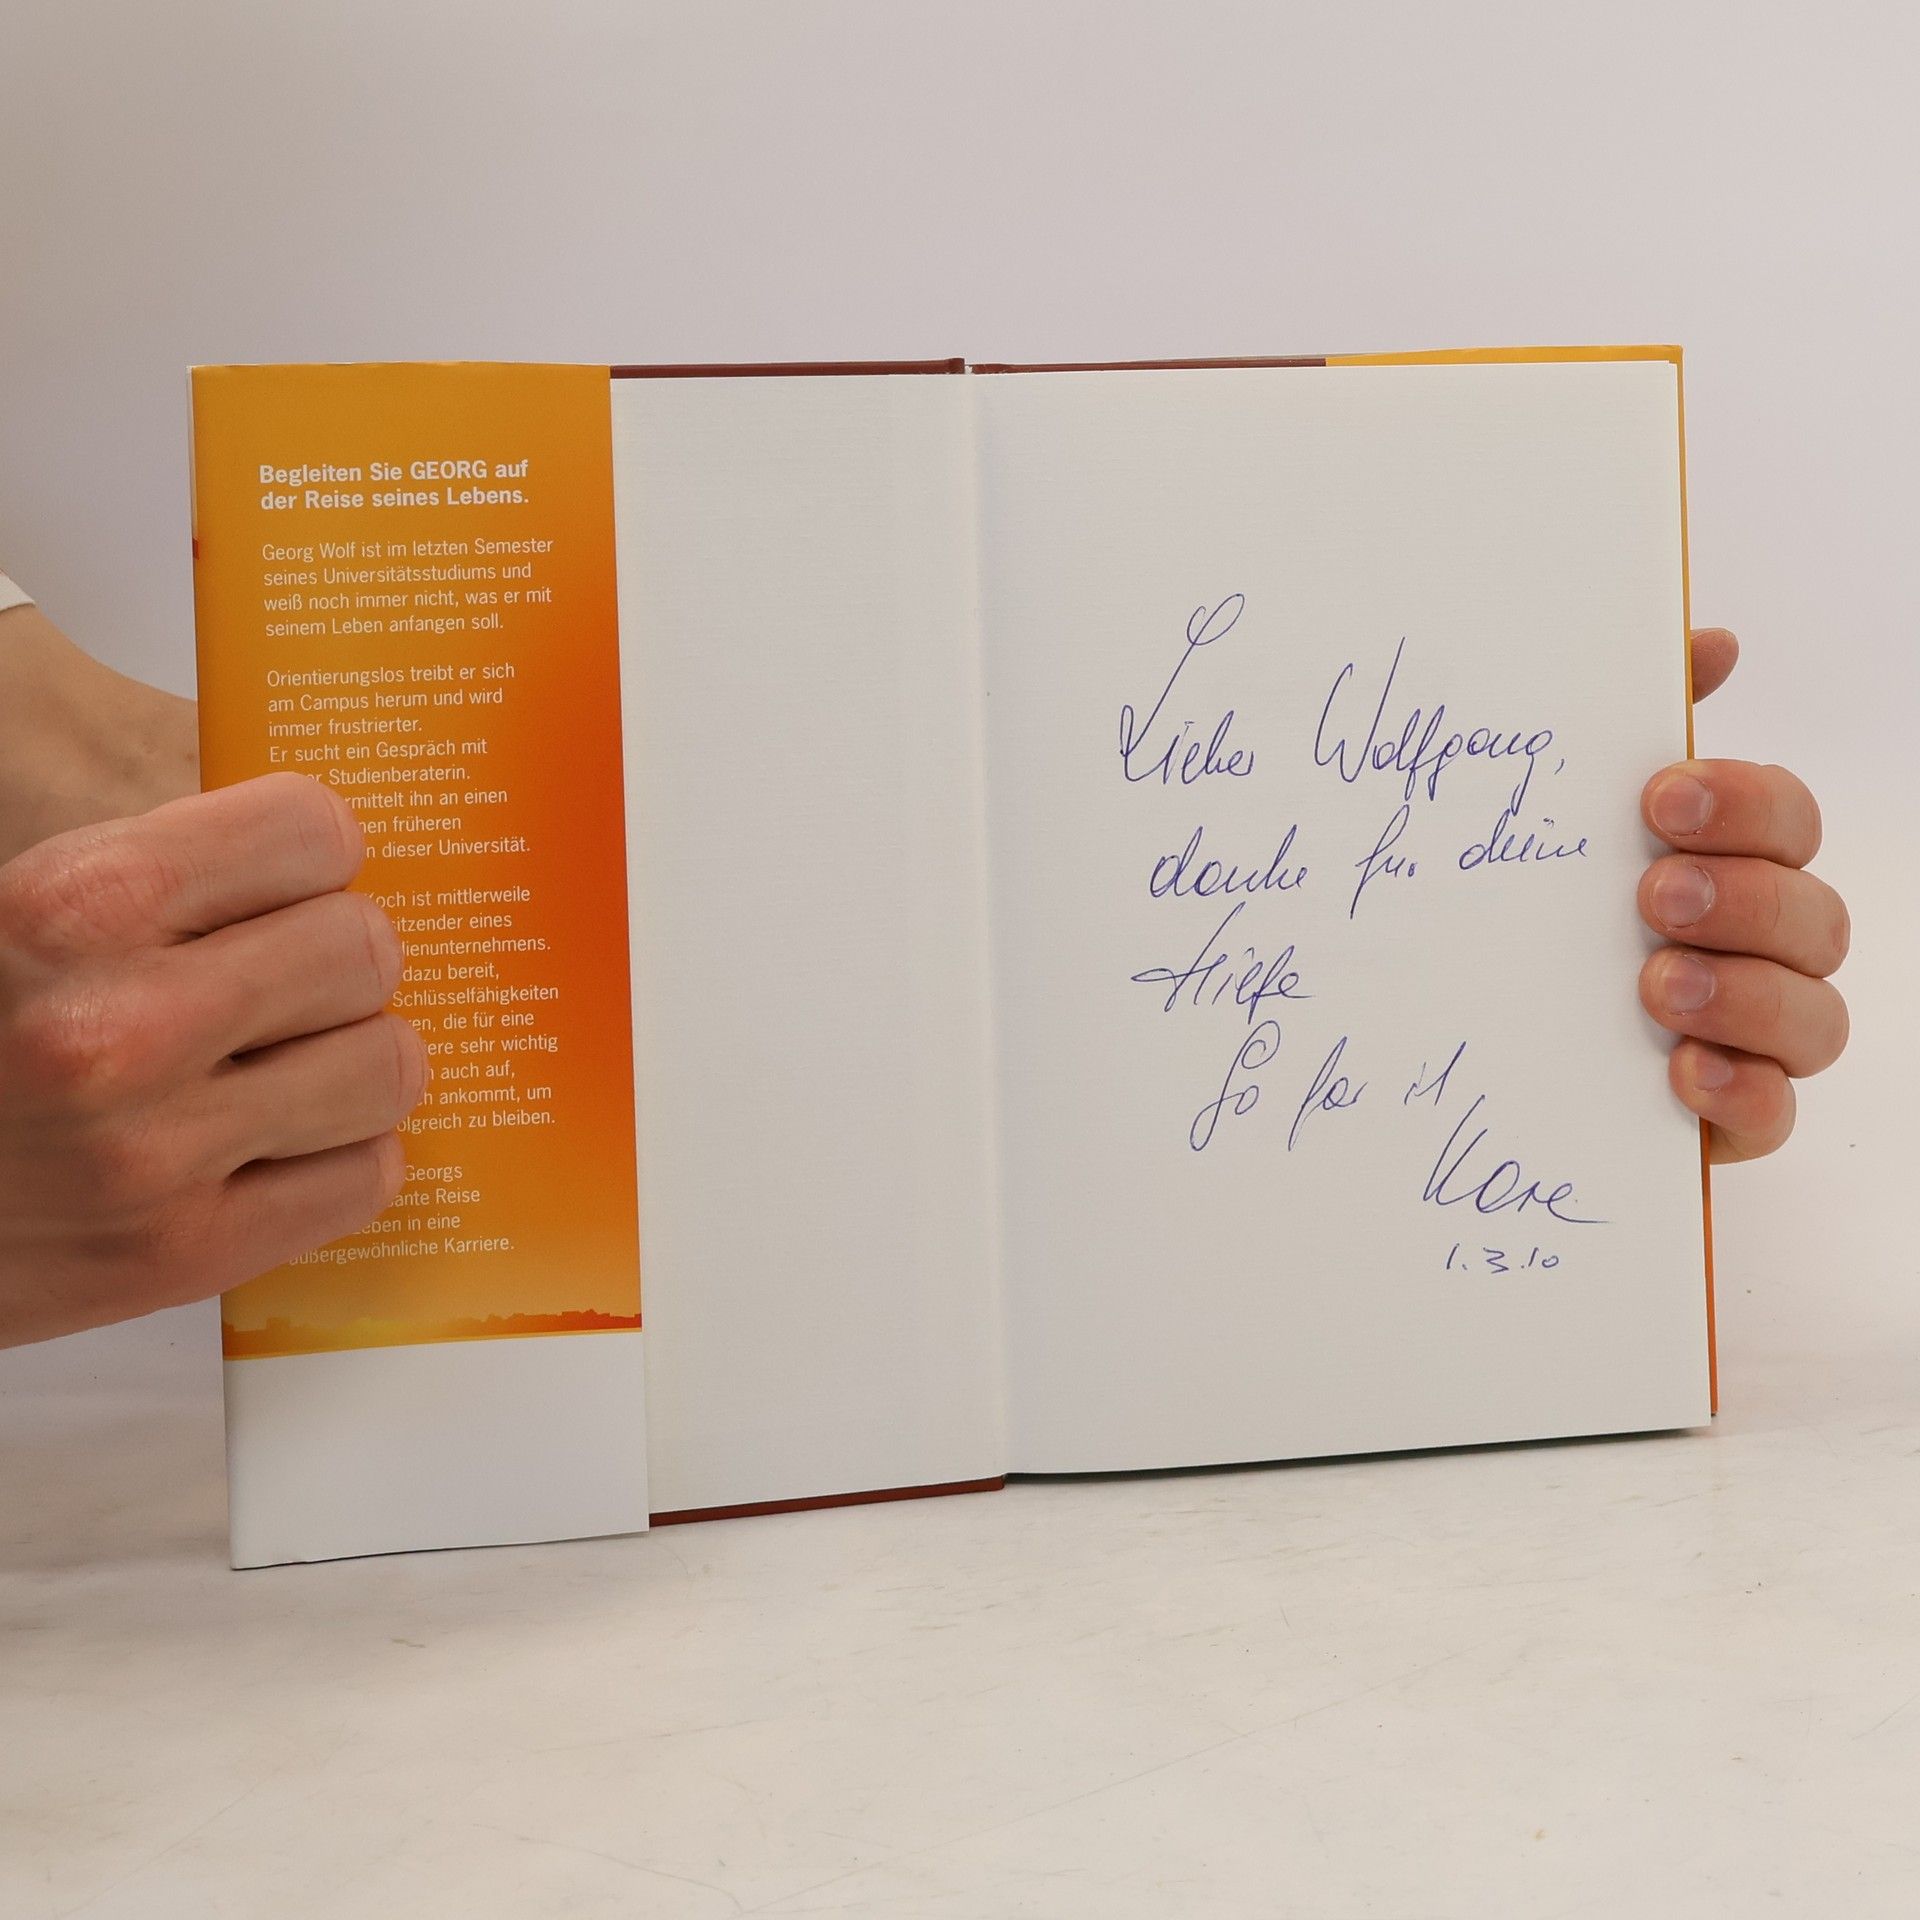 Begleiten Sie GEORG auf
der Reise seines Lebens.
Georg Wolf ist im letzten Semester
seines Universitätsstudiums und
weiß noch immer nicht, was er mit
seinem Leben anfangen soll.
Orientierungslos treibt er sich
am Campus herum und wird
immer frustrierter.
Er sucht ein Gespräch mit
Studienberaterin.
ihn an einen
früheren
dieser Universität.
ist mittlerweile
eines
dazu bereit,
Schlüsselfähigkeiten
die für eine
sehr wichtig
auch auf,
ankommt, um
zu bleiben.
Georgs
Reise
in eine
außergewöhnliche Karriere.
Lieber Wolfgang,
danke für deine
Hilfe
So far it
1.3.10